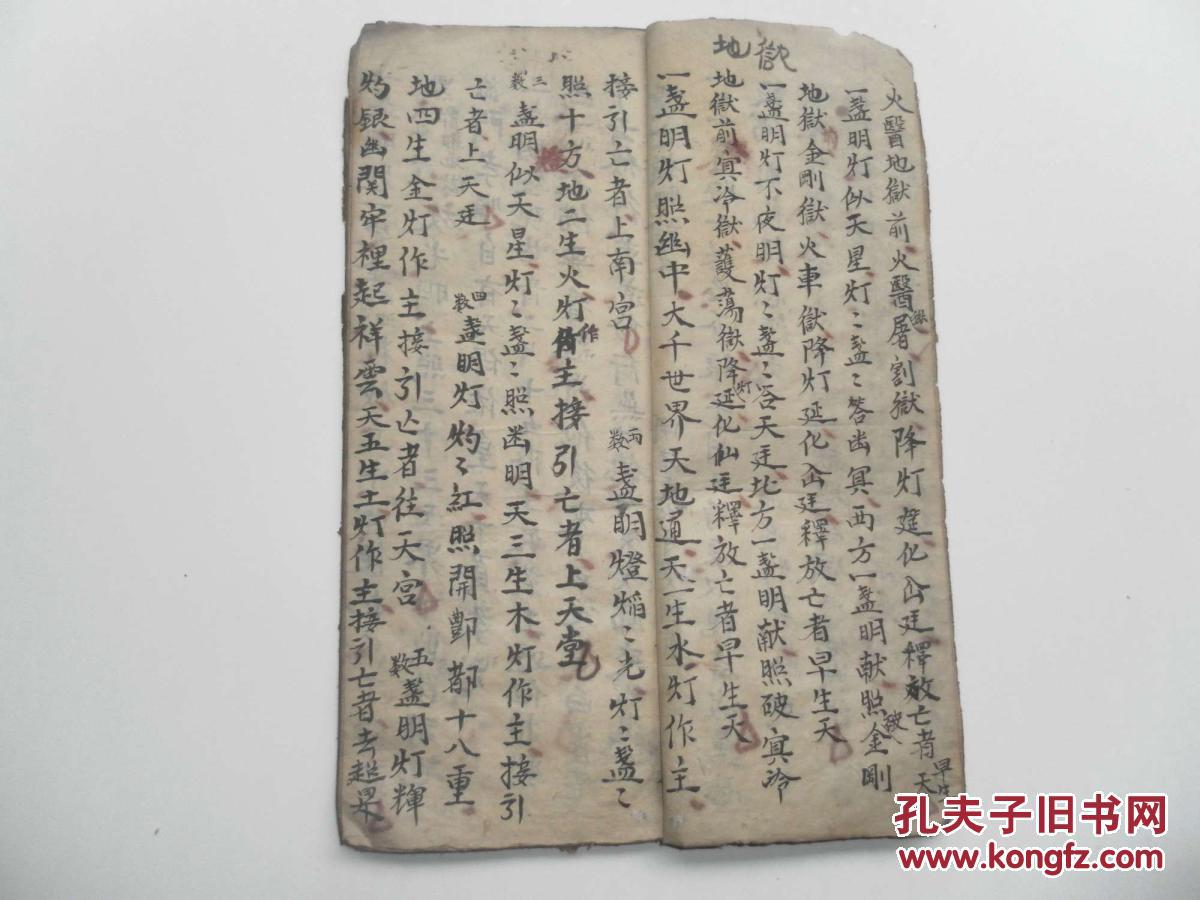 地獄
火醫地獄前火醫屠割獄降灯延化仙廷釋放亡者早生天
一盞明灯似天星灯〻盞〻答幽冥西方一盞明献照破金剛
地獄金剛獄火車獄降灯延化仙廷釋放亡者早生天
一盞明灯不夜明灯〻盞〻答天廷北方一盞明献照破寅冷
地獄前寅冷獄護蕩獄降灯延化仙廷釋放亡者早生天
一盞明灯照幽中大千世界天地通天一生水灯作主
接引亡者上南宮 两歎盞明燈焰〻光灯〻盞〻
照十方地二生火灯作主接引亡者上天堂
三歎盞明似天星灯〻盞〻照幽明天三生木灯作主接引
亡者上天廷 四歎盞明灯灼〻紅照開酆都十八重
地四生金灯作主接引亡者往天宮 五歎盞明灯輝
灼銀幽関牢裡起祥雲天五生土灯作主接引亡者去超昇
孔夫子旧书网
www.kongfz.com